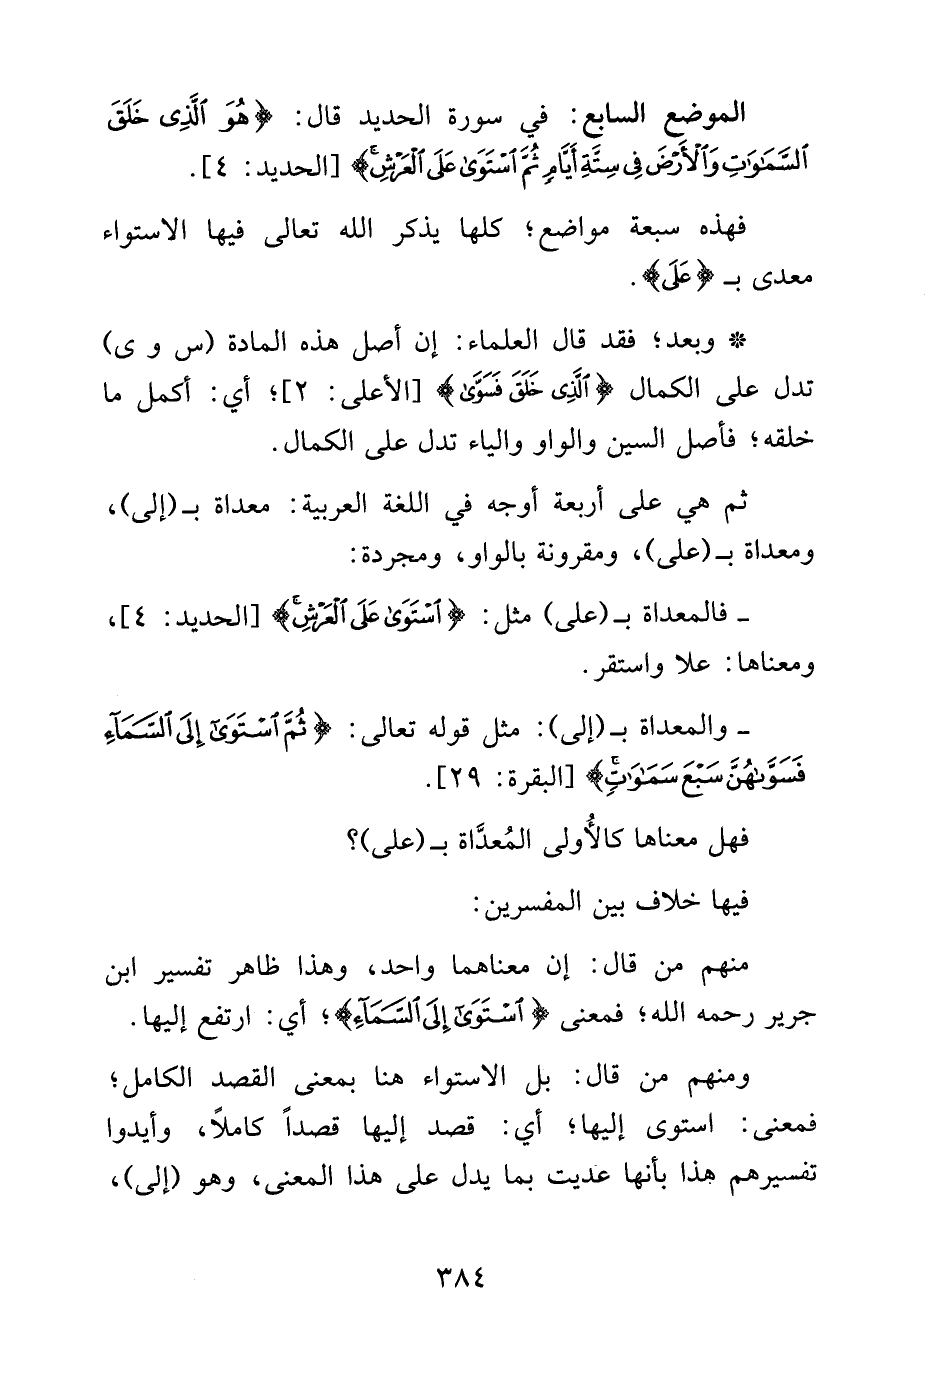 الموضع السابع: في سورة الحديد قال: ﴿هُوَ ٱلَّذِى خَلَقَ
ٱلسَّمَٰوَٰتِ وَٱلْأَرْضَ فِى سِتَّةِ أَيَّامٍ ثُمَّ ٱسْتَوَىٰ عَلَى ٱلْعَرْشِ ۚ﴾ [الحديد: ٤].
فهذه سبعة مواضع؛ كلها يذكر الله تعالى فيها الاستواء
معدى بـ ﴿عَلَى﴾.
* وبعد؛ فقد قال العلماء: إن أصل هذه المادة (س و ى)
تدل على الكمال ﴿ٱلَّذِى خَلَقَ فَسَوَّىٰ﴾ [الأعلى: ٢]؛ أي: أكمل ما
خلقه؛ فأصل السين والواو والياء تدل على الكمال.
ثم هي على أربعة أوجه في اللغة العربية: معداة بـ(إلى)،
ومعداة بـ(على)، ومقرونة بالواو، ومجردة:
ـ فالمعداة بـ(على) مثل: ﴿ٱسْتَوَىٰ عَلَى ٱلْعَرْشِ ۚ﴾ [الحديد: ٤]،
ومعناها: علا واستقر.
ـ والمعداة بـ(إلى): مثل قوله تعالى: ﴿ثُمَّ ٱسْتَوَىٰٓ إِلَى ٱلسَّمَآءِ
فَسَوَّىٰهُنَّ سَبْعَ سَمَٰوَٰتٍ ۚ﴾ [البقرة: ٢٩].
فهل معناها كالأُولى المُعدَّاة بـ(على)؟
فيها خلاف بين المفسرين:
منهم من قال: إن معناهما واحد، وهذا ظاهر تفسير ابن
جرير رحمه الله؛ فمعنى ﴿ٱسْتَوَىٰٓ إِلَى ٱلسَّمَآءِ﴾؛ أي: ارتفع إليها.
ومنهم من قال: بل الاستواء هنا بمعنى القصد الكامل؛
فمعنى: استوى إليها؛ أي: قصد إليها قصداً كاملاً، وأيدوا
تفسيرهم هذا بأنها عديت بما يدل على هذا المعنى، وهو (إلى)،
٣٨٤